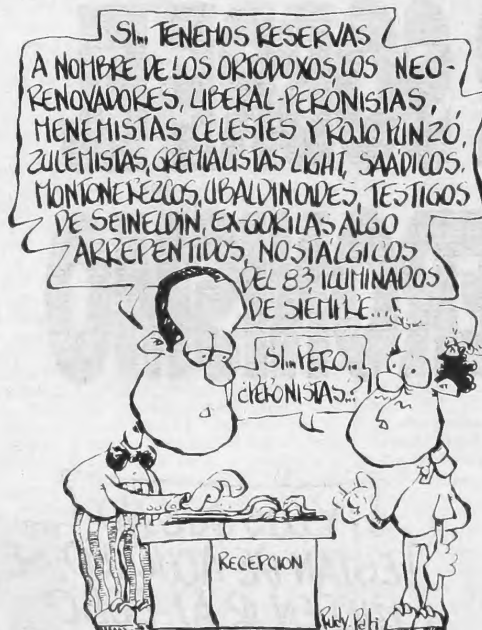 SI... TENEMOS RESERVAS
A NOMBRE DE LOS ORTODOXOS, LOS NEO-
RENOVADORES, LIBERAL-PERONISTAS,
MENEMISTAS CELESTES Y ROJO PUNZÓ,
ZULEMISTAS, GREMIALISTAS LIGHT, SAÁDICOS,
MONTONEREZCOS, UBALDINOIDES, TESTIGOS
DE SEINELDÍN, EX-GORILAS ALGO
ARREPENTIDOS, NOSTÁLGICOS
DEL 83, ILUMINADOS
DE SIEMPRE...
SI... PERO...
¿PERONISTAS..?
RECEPCION
Rudy. Pati